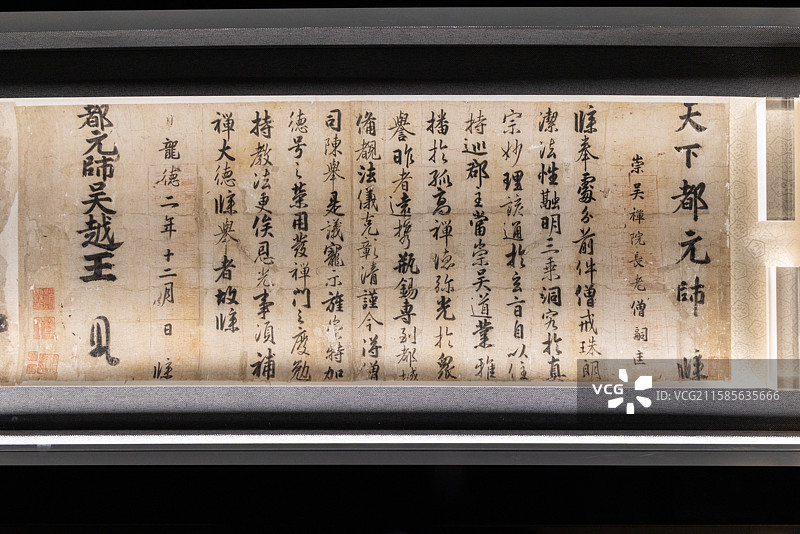 天下都元帥 牒
崇吳禪院長老僧嗣匡
牒奉處分前件僧戒珠朗
潔法性融明三乘洞究於真
宗妙理該通於玄旨自以住
持巡郡王當崇吳道業雅
播於孤高禪德弥光於眾
譽昨者遠携瓶錫專到都城
備覩法儀克彰清謹今得僧
司陳舉是議寵示旌崇特加
德号之榮用發禪門之慶勉
持教法更俟恩光事須補
禪大德牒舉者故牒
龍德二年十二月 日 牒
都元帥吳越王
VCG
VCG211585635666